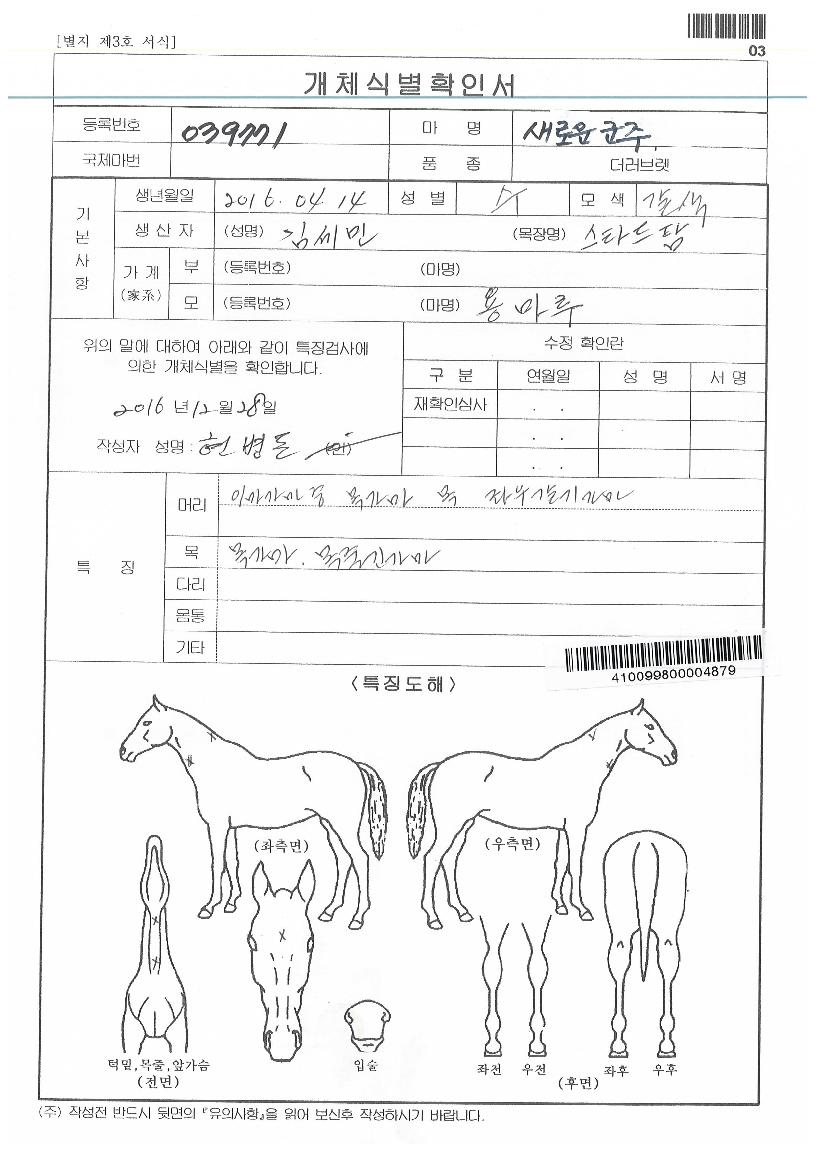 [별지 제3호 서식]
03
개체식별확인서
등록번호 039771 마 명 새로운군주
국제마번 품 종 더러브렛
기본사항
생년월일 2016. 04. 14 성 별 수 모 색 갈색
생 산 자 (성명) 김세민 (목장명) 스타드담
가 계 (家系)
부 (등록번호) (마명)
모 (등록번호) (마명) 용마루
위의 말에 대하여 아래와 같이 특징검사에
의한 개체식별을 확인합니다.
2016 년 12 월 28 일
작성자 성명 : 현병돈 (인)
수정 확인란
구 분 연월일 성 명 서 명
재확인심사 . .
. .
. .
특 징
머리
목
다리
몸통
기타
410099800004879
<특징도해>
(좌측면) (우측면)
턱밑,목줄,앞가슴 입술 좌전 우전 좌후 우후
(전면) (후면)
(주) 작성전 반드시 뒷면의 『유의사항』을 읽어 보신후 작성하시기 바랍니다.